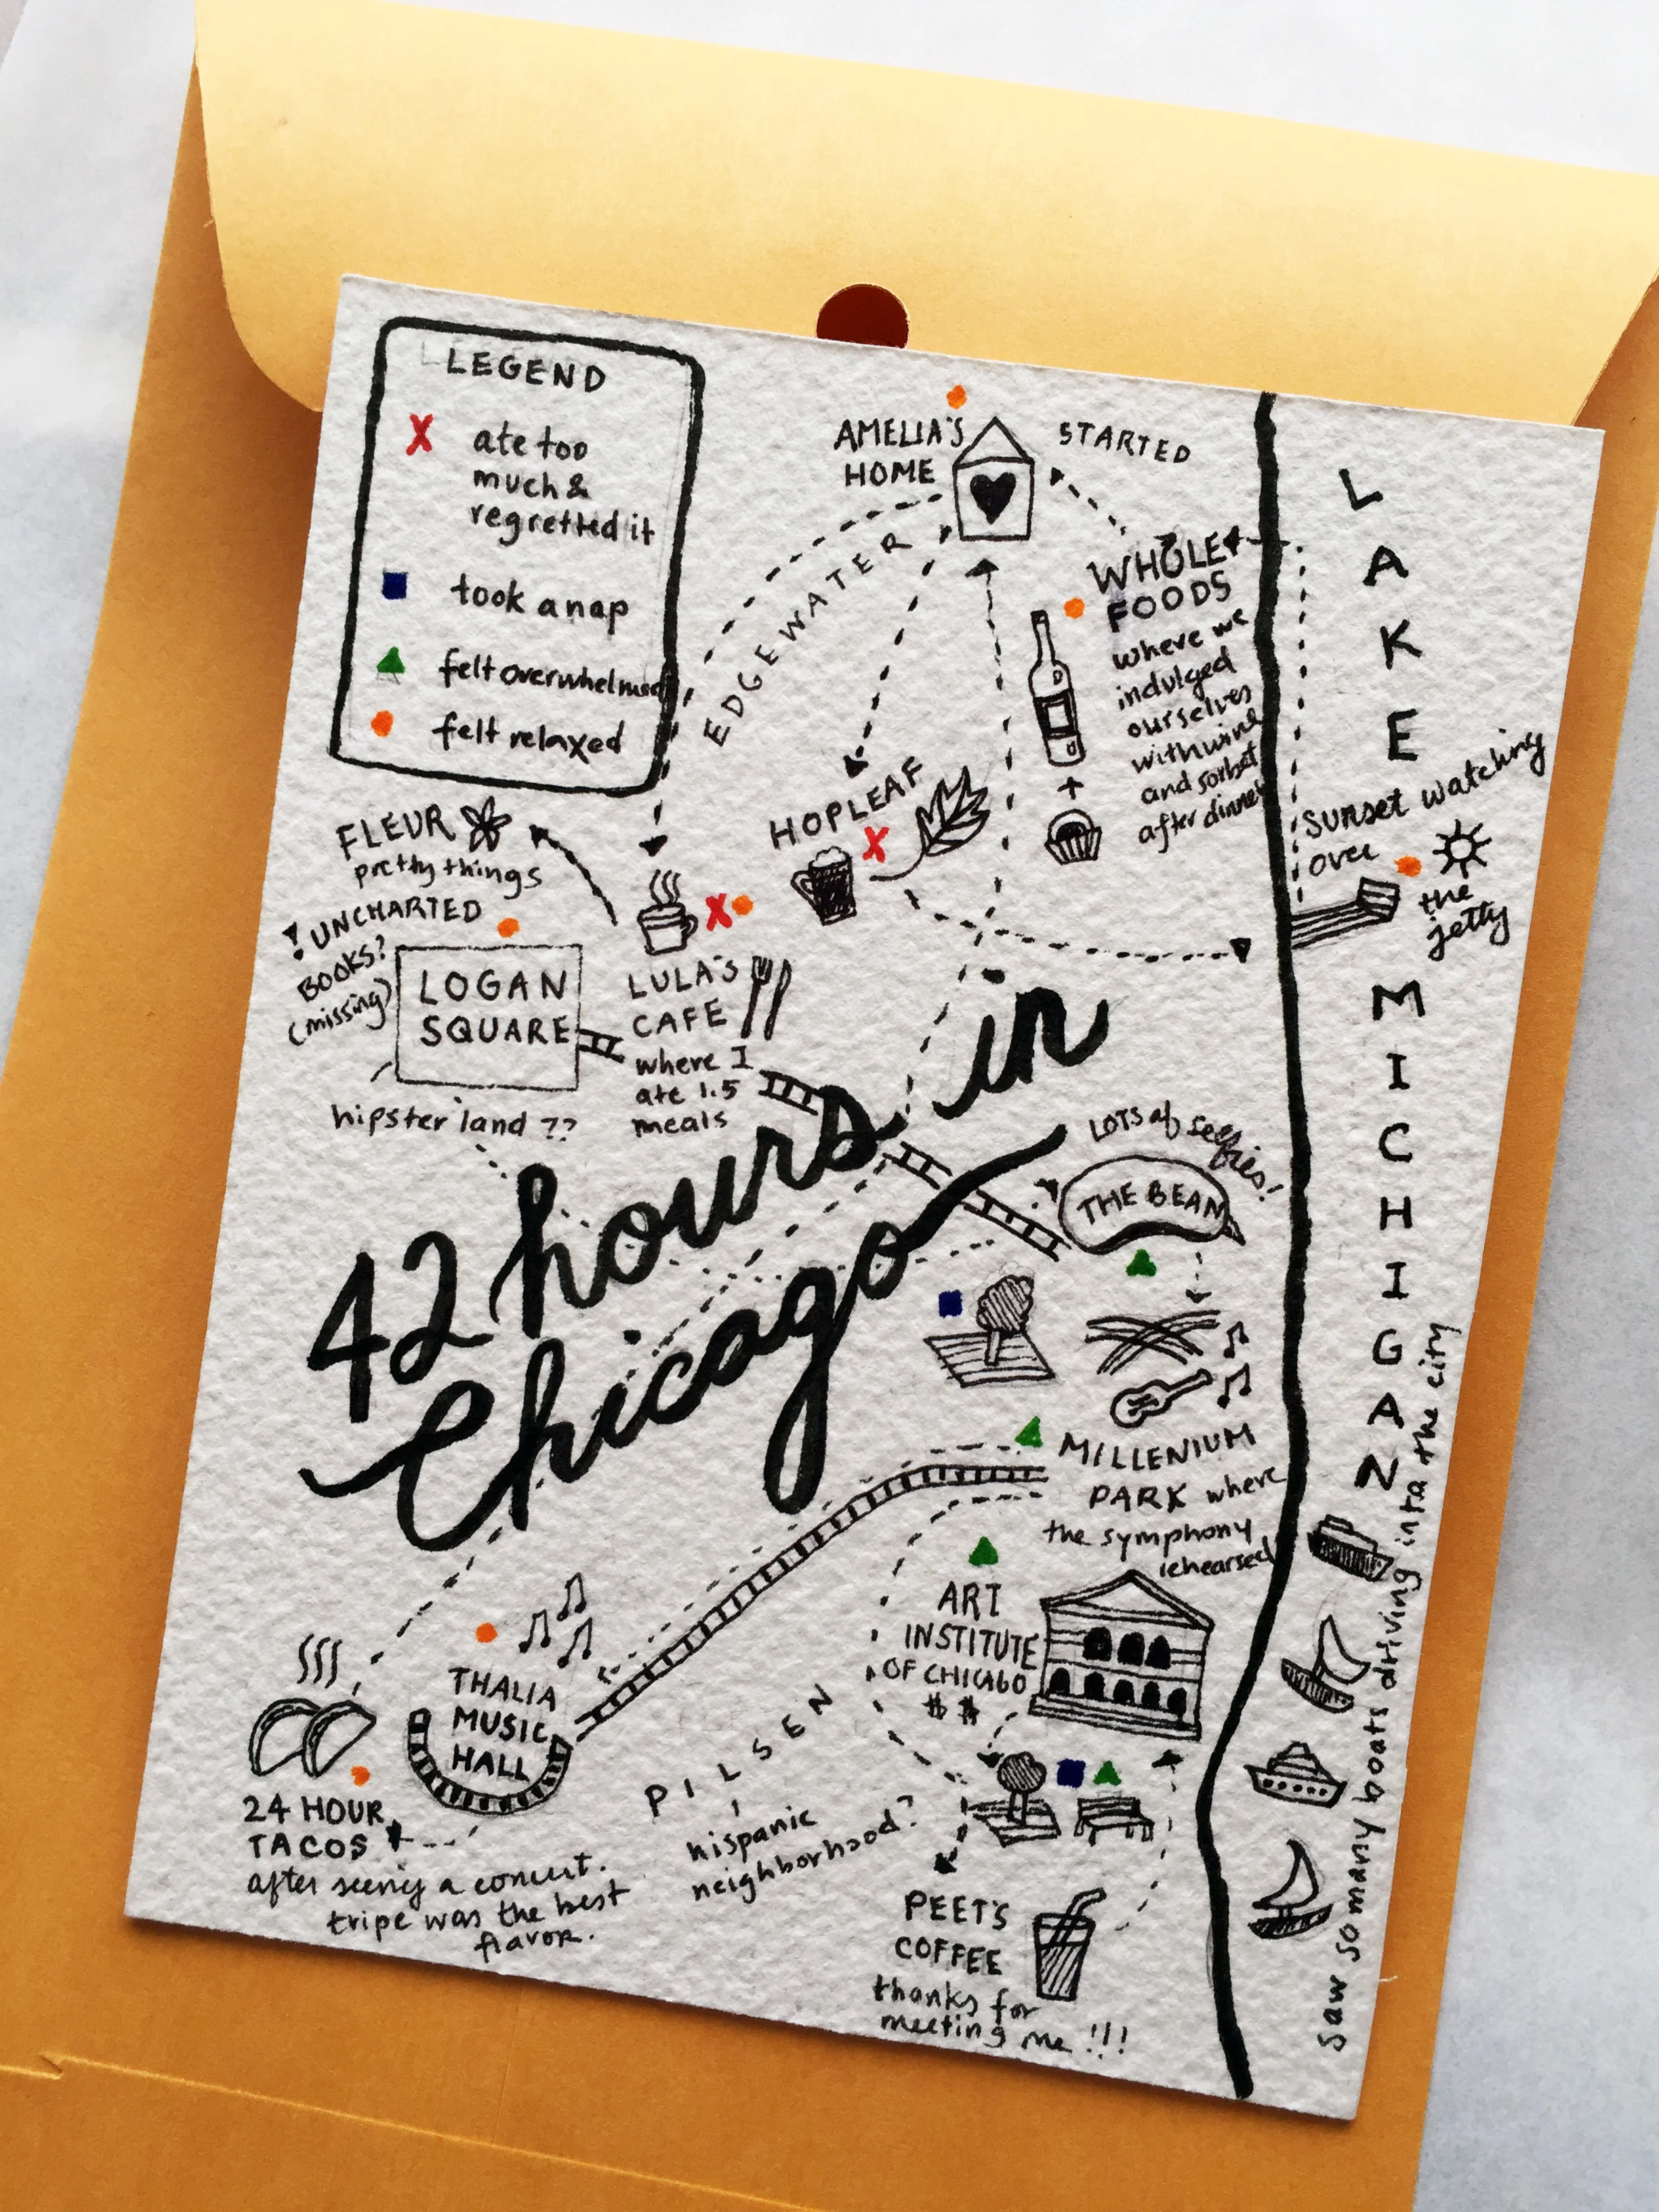 LEGEND
X ate too
much &
regretted it
took a nap
felt overwhelmed
felt relaxed
AMELIA'S
HOME
STARTED
EDGEWATER
WHOLE
FOODS
where we
indulged
ourselves
with wine
and sorbet
after dinner
+
HOPLEAF
X
LAKE MICHIGAN
sunset watching
over
the
jetty
FLEUR
pretty things
! UNCHARTED
BOOKS?
(missing)
LOGAN
SQUARE
hipster land ??
X
LULA'S
CAFE
where I
ate 1.5
meals
42 hours in
Chicago
LOTS of selfies!
THE BEAN
MILLENIUM
PARK where
the symphony
rehearsed
ART
INSTITUTE
OF CHICAGO
$$
THALIA
MUSIC
HALL
24 HOUR
TACOS
after seeing a concert.
tripe was the best
flavor.
PILSEN
hispanic
neighborhood?
PEET'S
COFFEE
thanks for
meeting me !!!
saw so many boats driving into the city